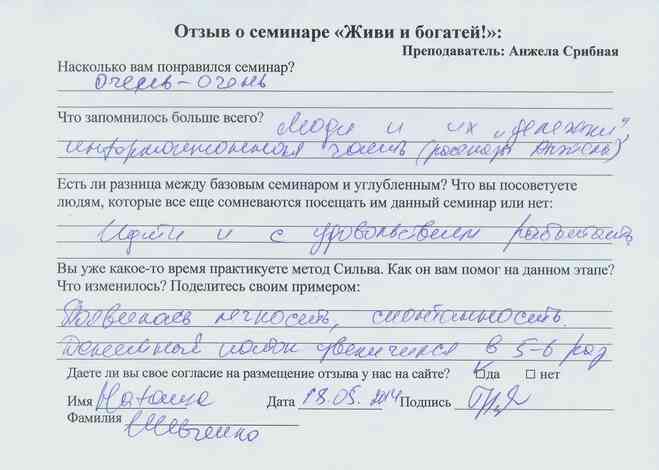 Отзыв о семинаре «Живи и богатей!»:
Преподаватель: Анжела Срибная
Насколько вам понравился семинар?
очень-очень
Что запомнилось больше всего? Люди и их „денежки",
информационная часть (рассказы Анжелы)
Есть ли разница между базовым семинаром и углубленным? Что вы посоветуете
людям, которые все еще сомневаются посещать им данный семинар или нет:
Идти и с удовольствием работать
Вы уже какое-то время практикуете метод Сильва. Как он вам помог на данном этапе?
Что изменилось? Поделитесь своим примером:
Появилась легкость, спонтанность.
Денежный поток увеличился в 5-6 раз
Даете ли вы свое согласие на размещение отзыва у нас на сайте? ☑да ☐ нет
Имя Наташа Дата 18.05.2014 Подпись
Фамилия Шевченко